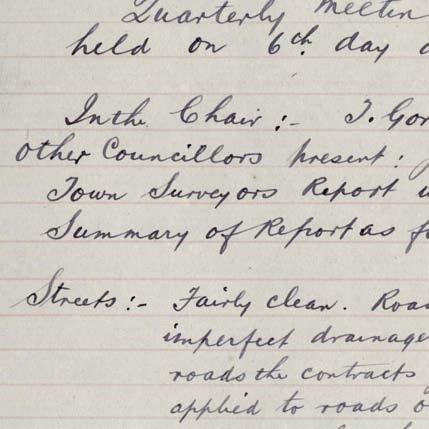 Quarterly Meetin
held on 6th day
In the Chair :- T. Gor
other Councillors present :
Town Surveyors Report
Summary of Report as f
Streets :- Fairly clean. Road
imperfect drainage
roads the contracts
applied to roads o